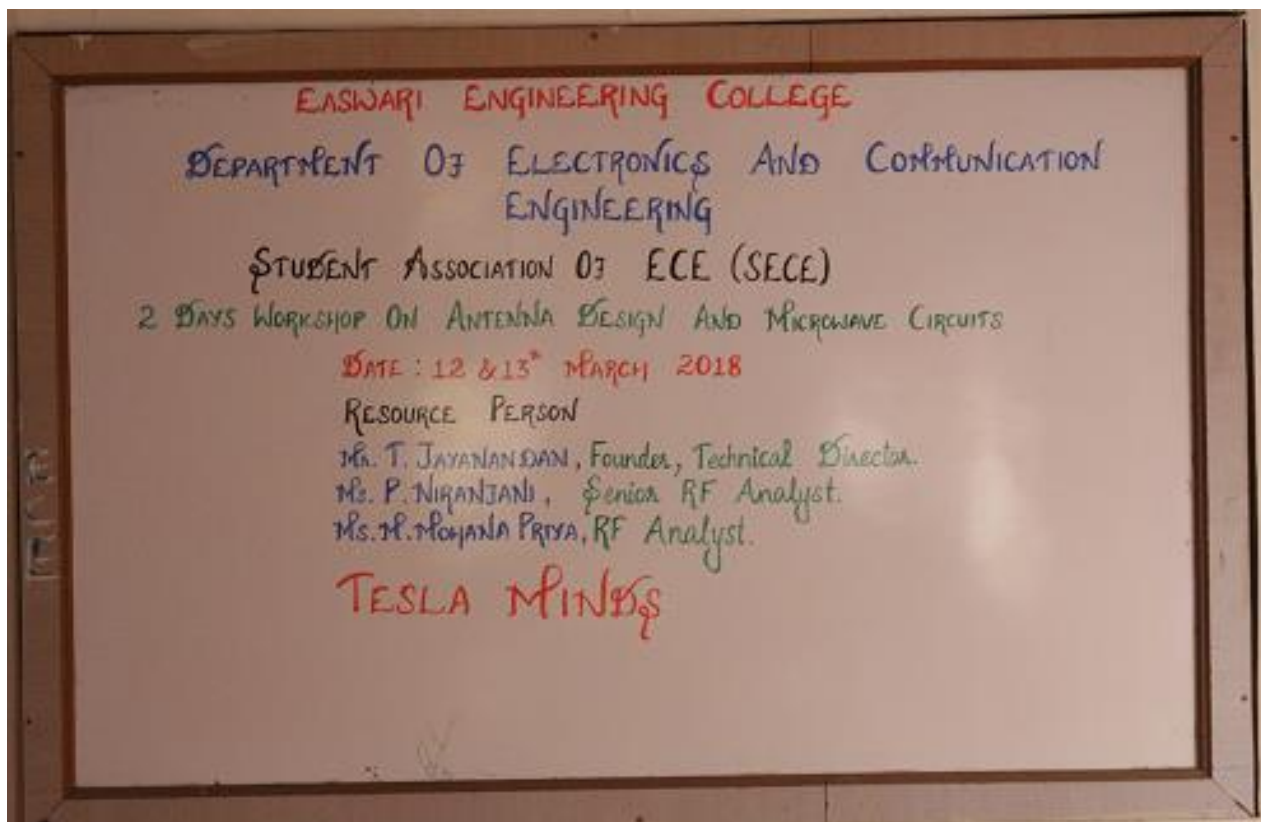 EASWARI ENGINEERING COLLEGE
DEPARTMENT OF ELECTRONICS AND COMMUNICATION
ENGINEERING
STUDENT ASSOCIATION OF ECE (SECE)
2 DAYS WORKSHOP ON ANTENNA DESIGN AND MICROWAVE CIRCUITS
DATE : 12 & 13th MARCH 2018
RESOURCE PERSON
Mr. T. JAYANANDAN, Founder, Technical Director.
Ms. P. NIRANJANI, Senior RF Analyst.
Ms. M. MOHANA PRIYA, RF Analyst.
TESLA MINDS